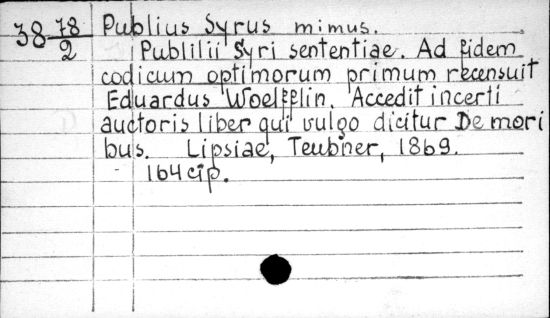 38 78/2 Publius Syrus mimus.
Publilii Syri sententiae. Ad fidem
codicum optimorum primum recensuit
Eduardus Woelfflin. Accedit incerti
auctoris liber qui vulgo dicitur De mori
bus. Lipsiae, Teubner, 1869.
164 стр.